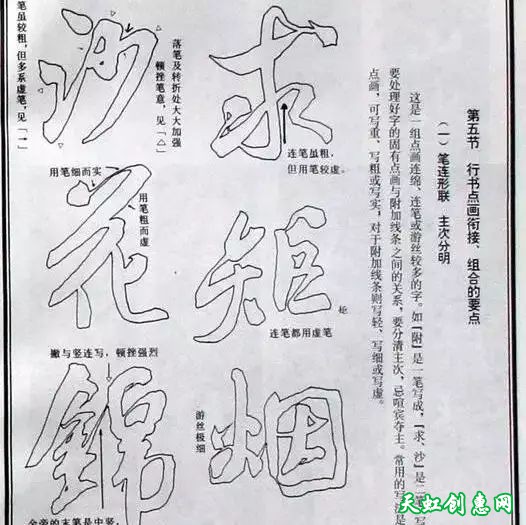 第五节　行书点画衔接、组合的要点
（一）笔连形联　主次分明
这是一组点画连绵、连笔或游丝较多的字。如【附】是一笔写成，【求、沙】是二笔写
要处理好字的固有点画与附加线条之间的关系，要分清主次，忌喧宾夺主。常用的写法是
点画，可写重、写粗或写实，对于附加线条则写轻、写细或写虚。
求
连笔虽粗，
但用笔较虚。
矩
连笔都用虚笔
烟
游丝极细
沙
落笔及转折处大大加强
顿挫笔意，见「△」
笔虽较粗，但多系虚笔，见「→」
花
用笔细而实
用笔粗而虚
撇与竖连写，顿挫强烈
锦
金旁的末笔是中竖，
天虹创意网